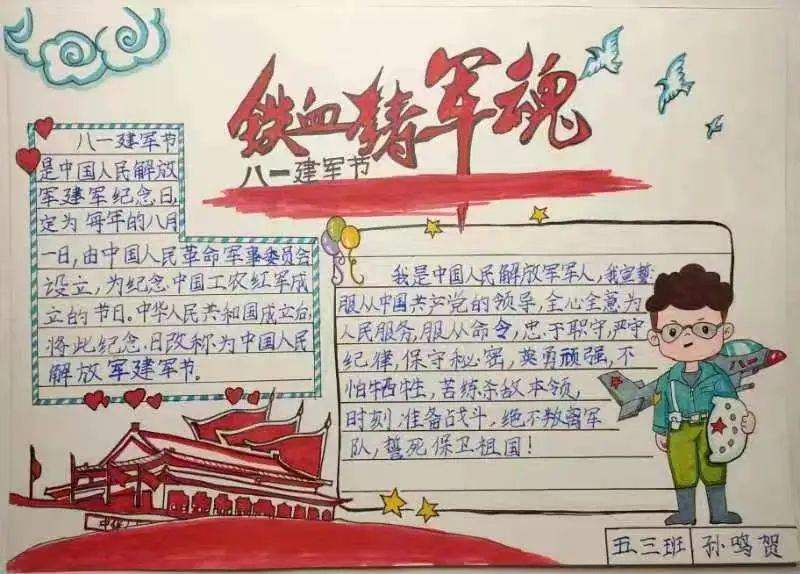 铁血铸军魂
八一建军节
八一建军节
是中国人民解放
军建军纪念日,
定为每年的八月
一日,由中国人民革命军事委员会
设立,为纪念中国工农红军成
立的节日。中华人民共和国成立后,
将此纪念日改称为中国人民
解放军建军节。
我是中国人民解放军军人,我宣誓
服从中国共产党的领导,全心全意为
人民服务,服从命令,忠于职守,严守
纪律,保守秘密,英勇顽强,不
怕牺牲,苦练杀敌本领,
时刻准备战斗,绝不叛离军
队,誓死保卫祖国!
八一
中华
五.三班
孙鸣贺